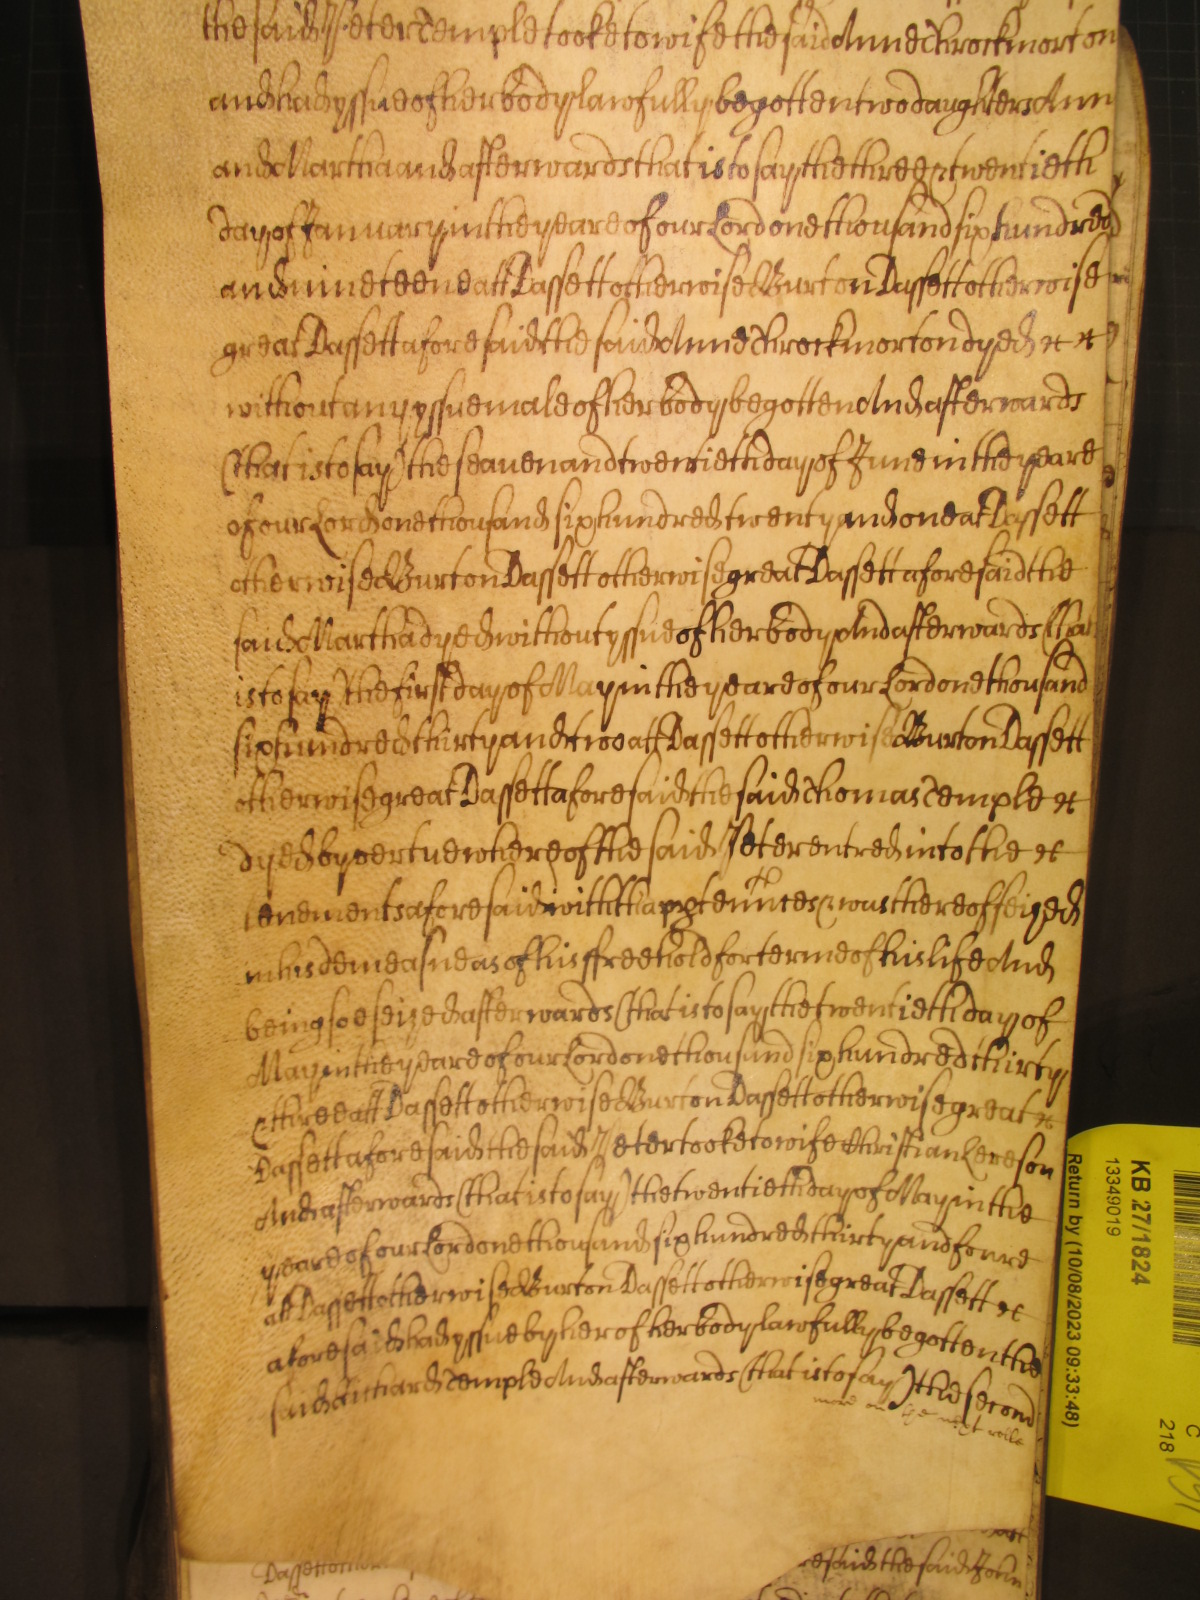 the said Peter Temple tooke to wife the said Anne Throckmorton
and had yssue of her body lawfully begotten twoo daughters Ann
and Martha and afterwards that is to say the three & twentieth
day of January in the yeare of our Lord one thousand six hundred
and nineteene att Dassett otherwise Burton Dassett otherwise
great Dassett aforesaid the said Anne Throckmorton dyed &c &c
without any yssue male of her body begotten And afterwards
(that is to say) the seaven and twentieth day of June in the yeare
of our Lord one thousand six hundred twenty and one at Dassett
otherwise Burton Dassett otherwise great Dassett aforesaid the
said Martha dyed without yssue of her body And afterwards (that
is to say) the first day of May in the yeare of our Lord one thousand
six hundred thirty and twoo att Dassett otherwise Burton Dassett
otherwise great Dassett aforesaid the said Thomas Temple &c
dyed by vertue whereof the said Peter entred into the &c
tenements aforesaid with th apptennces & was thereof seized
in his demeasne as of his ffreehold for terme of his life And
being soe seized afterwards (that is to say the twentieth day of
May in the yeare of our Lord one thousand six hundred thirty
& three att Dassett otherwise Burton Dassett otherwise great &c
Dassett aforesaid the said Peter tooke to wife Christian Leveson
And afterwards (that is to say) the twentieth day of May in the
yeare of our Lord one thousand six hundred thirty and foure
att Dassett otherwise Burton Dassett otherwise great Dassett &c
aforesaid had yssue by her of her body lawfully begotten the
said Richard Temple And afterwards (that is to say) the second
more on the next rolle
Dassett
resaid the said John
KB 27/1824
13349019
Return by (10/08/2023 09:33:48)
C
218